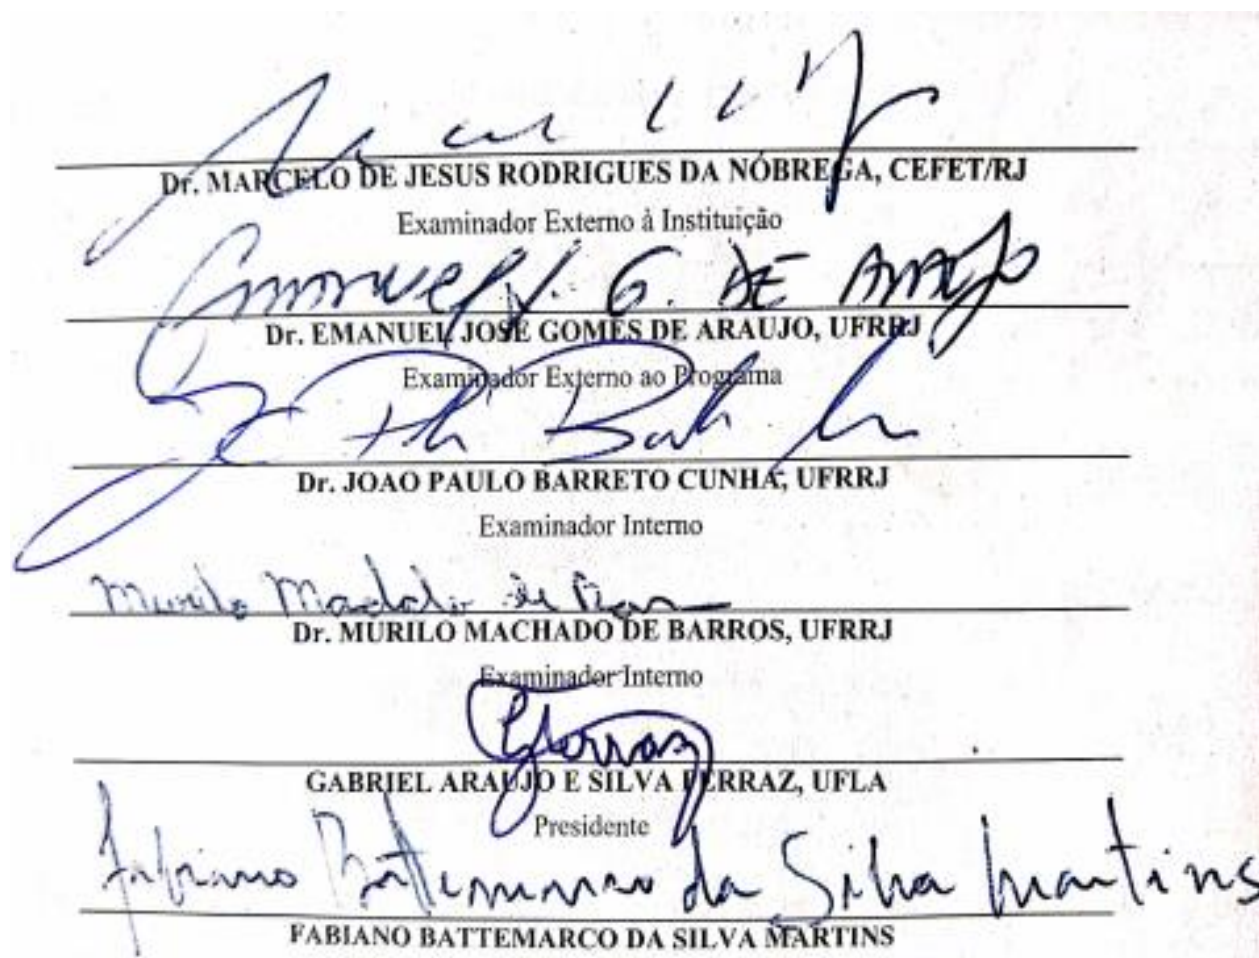 Dr. MARCELO DE JESUS RODRIGUES DA NÓBREGA, CEFET/RJ
Examinador Externo à Instituição
Emanuel J. G. DE ARAUJO
Dr. EMANUEL JOSÉ GOMES DE ARAUJO, UFRRJ
Examinador Externo ao Programa
Dr. JOAO PAULO BARRETO CUNHA, UFRRJ
Examinador Interno
Murilo Machado de
Dr. MURILO MACHADO DE BARROS, UFRRJ
Examinador Interno
GFerraz
GABRIEL ARAÚJO E SILVA FERRAZ, UFLA
Presidente
Fabiano Battemarco da Silva Martins
FABIANO BATTEMARCO DA SILVA MARTINS